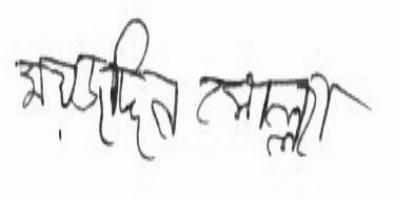 ময়জুদ্দিন মোল্লা